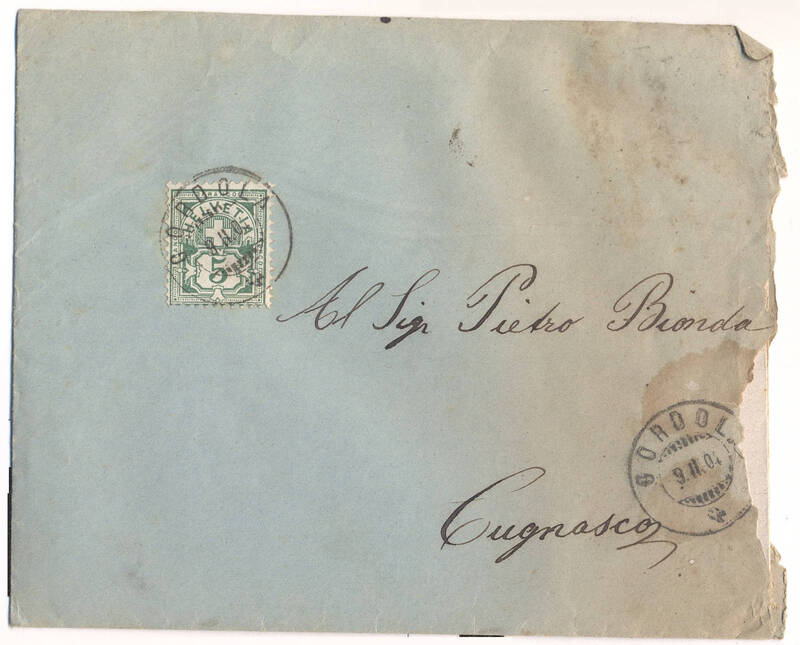 GORDOLA
HELVETIA
5
Al Sigr Pietro Bionda
GORDOL
9.II.04
Cugnasco